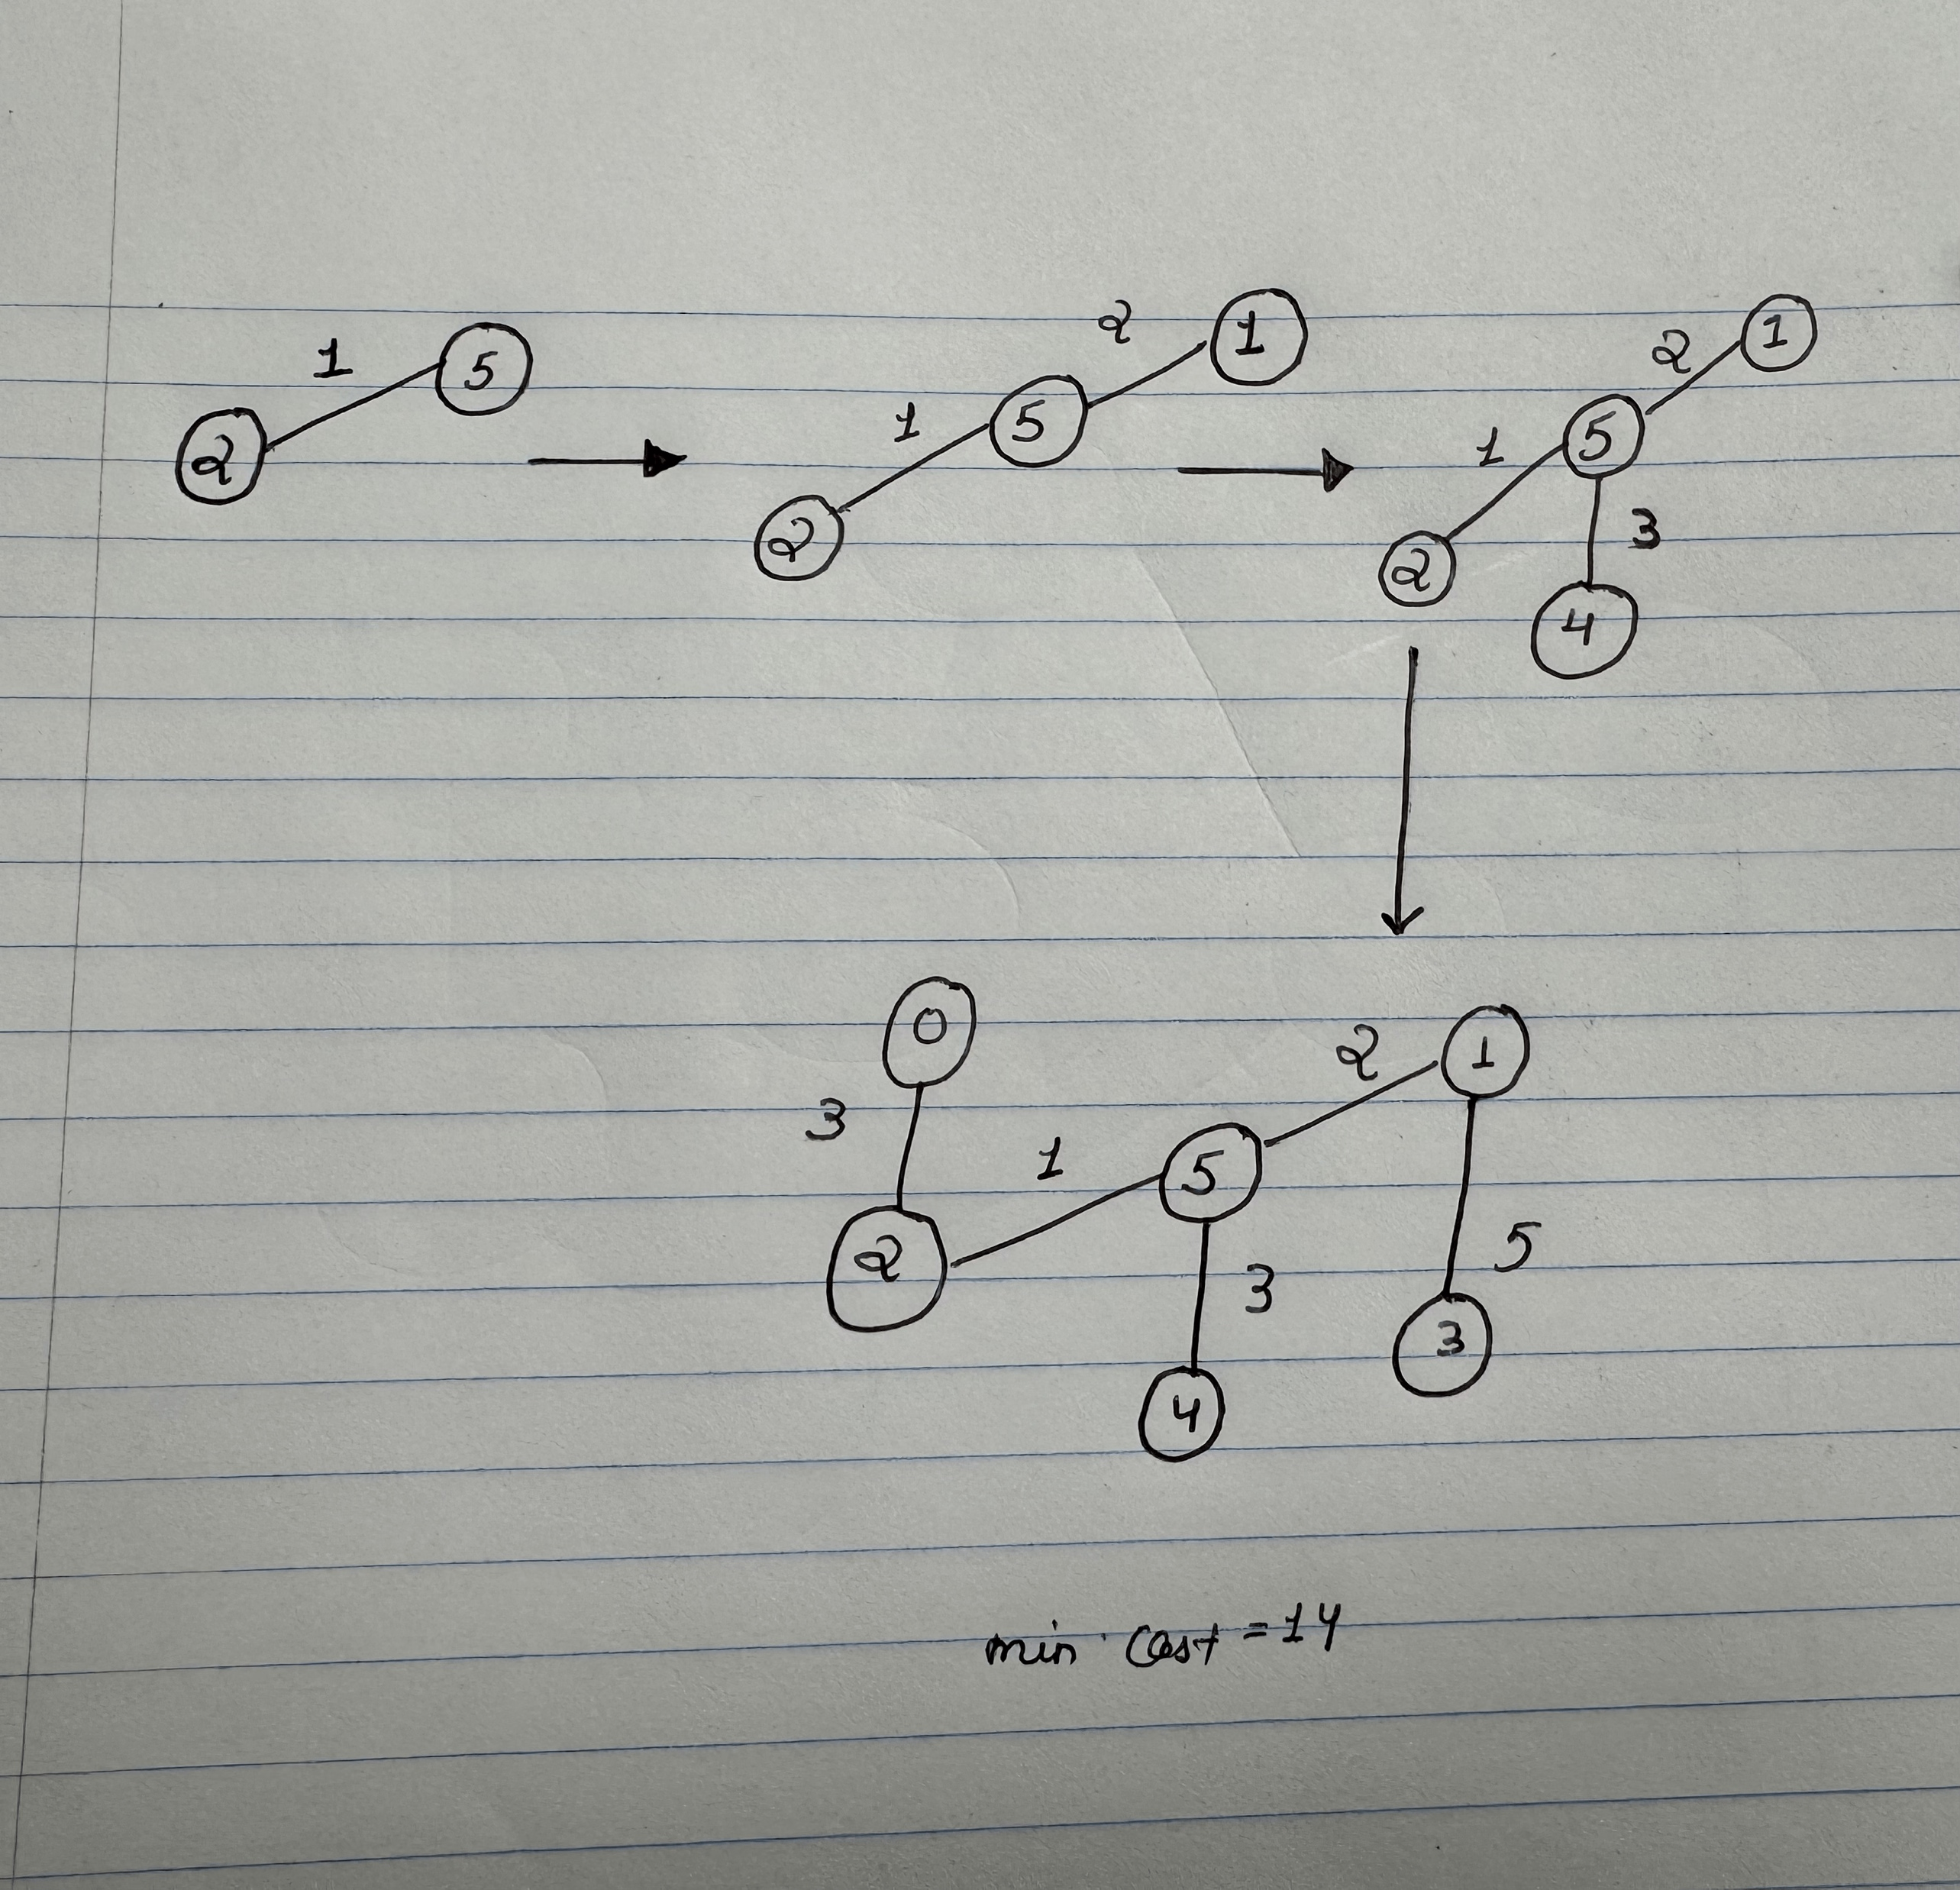 1
2 5
2
1
1 5
2
2
1
1 5
2 3
4
0
2 1
3
1 5
2
3 5
3
4
min. cost = 14